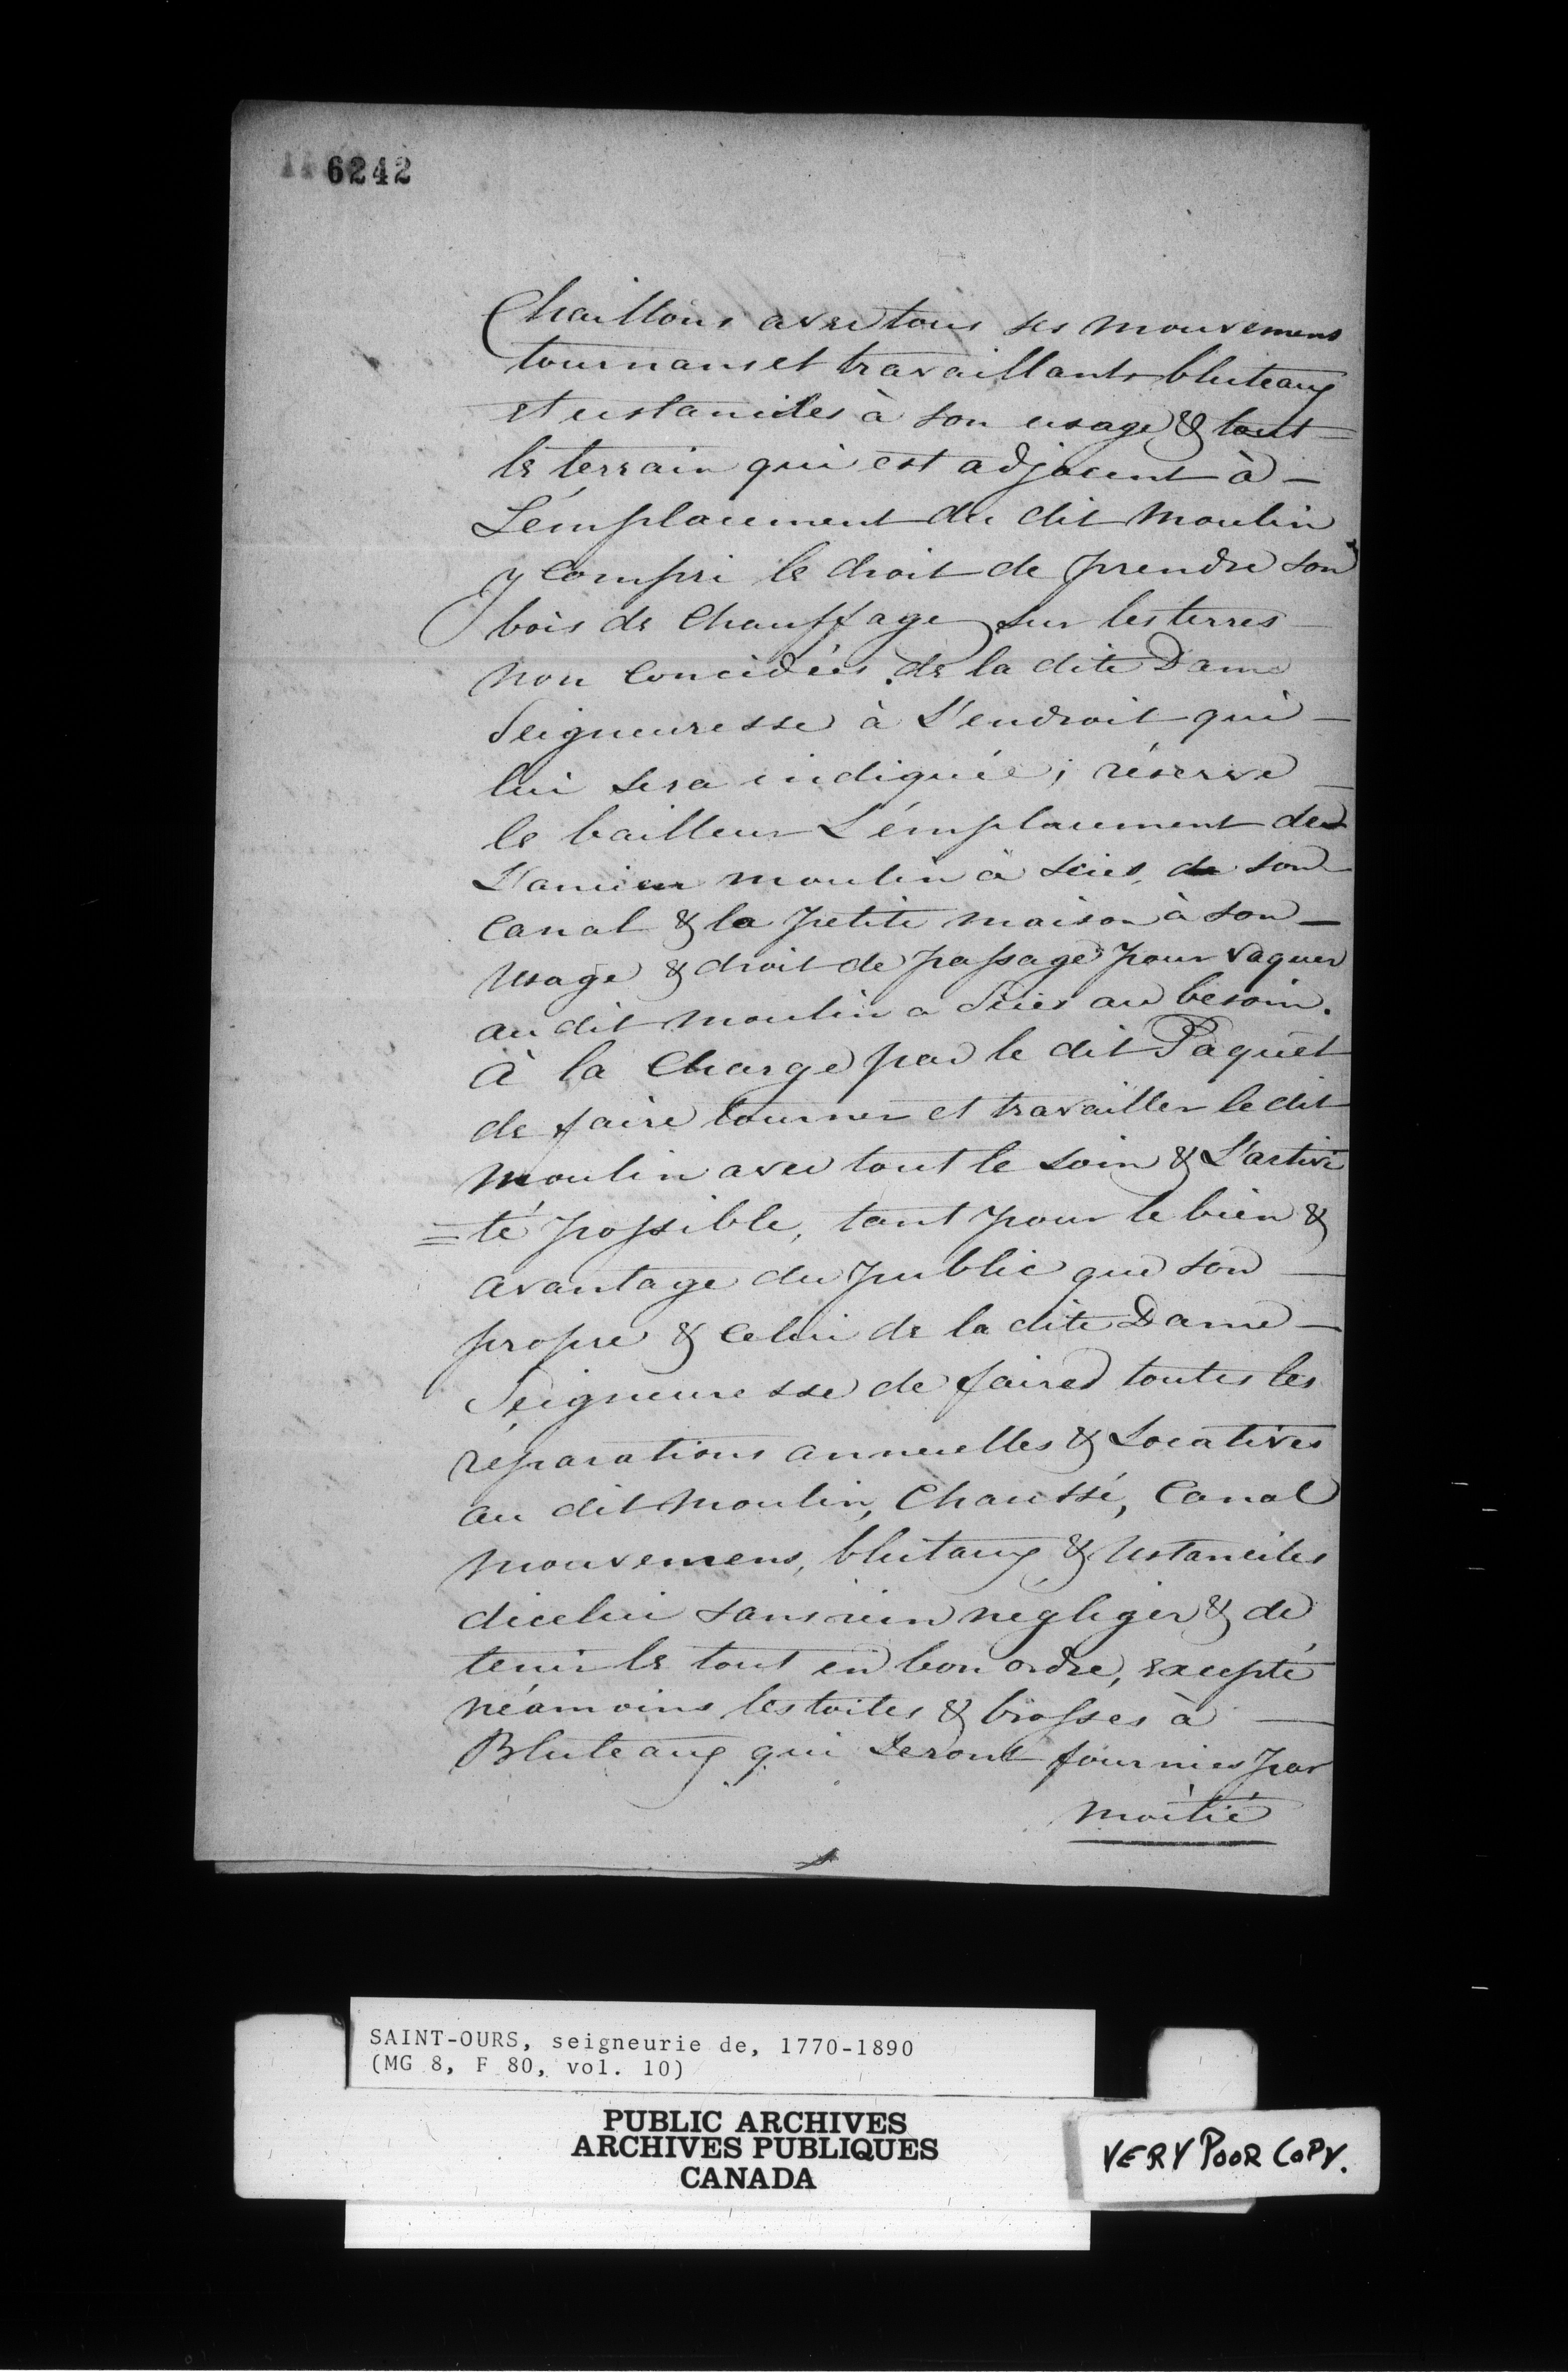 6242
Chaillons avec tous ses mouvemens
tournans et travaillants bluteaux
et ustanciles à son usage & tout
le terrain qui est adjacent à —
L'émplacement du dit Moulin
y Compri le droit de prendre son
bois de Chauffage sur les terres
non Concédées de la dite Dame
Seigneuresse à L'endroit qui —
lui sera indiquée ; réserve —
le bailleur L'émplacement de
L'ancien moulin à scies, de son
Canal & la petite maison à son —
Usage & droit de passage pour vaquer
au dit moulin a Scies au besoin.
à la Charge par le dit Paquet
de faire tourner et travailler le dit
Moulin avec tout le soin & L'activi
=té possible, tant pour le bien &
avantage du public que son —
propre & Celui de la dite Dame —
Seigneuresse de faires toutes les
réparations annuelles & Locatives
au dit Moulin, Chaussé, Canal
Mouvemens, blutaux & Ustanciles
dicelui sans rien négliger & de
tenir le tout en bon ordre, excepté
néamoins les toiles & brosses à —
Bluteaux qui Seront fournies par
moitié
SAINT-OURS, seigneurie de, 1770-1890
(MG 8, F 80, vol. 10)
PUBLIC ARCHIVES
ARCHIVES PUBLIQUES
CANADA
VERY POOR COPY.